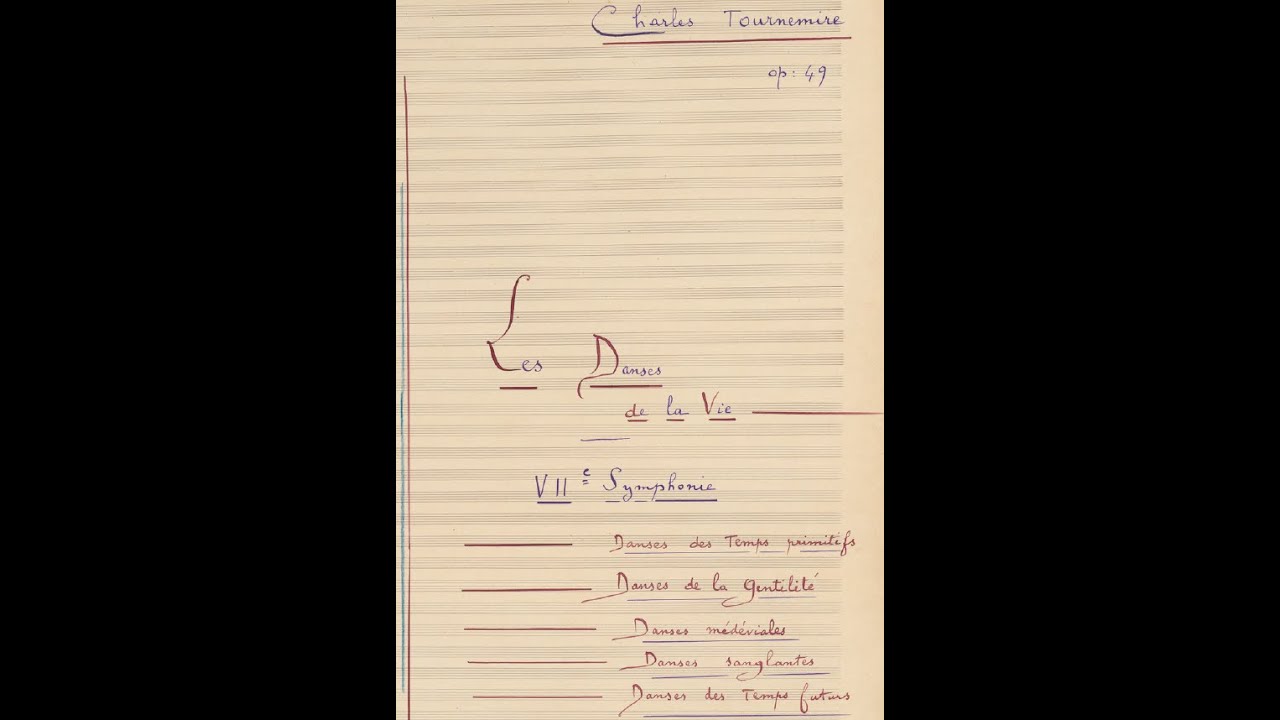 Charles Tournemire
op: 49
Les Danses
de la Vie
VIIe Symphonie
Danses des Temps primitifs
Danses de la gentilité
Danses médéviales
Danses sanglantes
Danses des Temps futurs